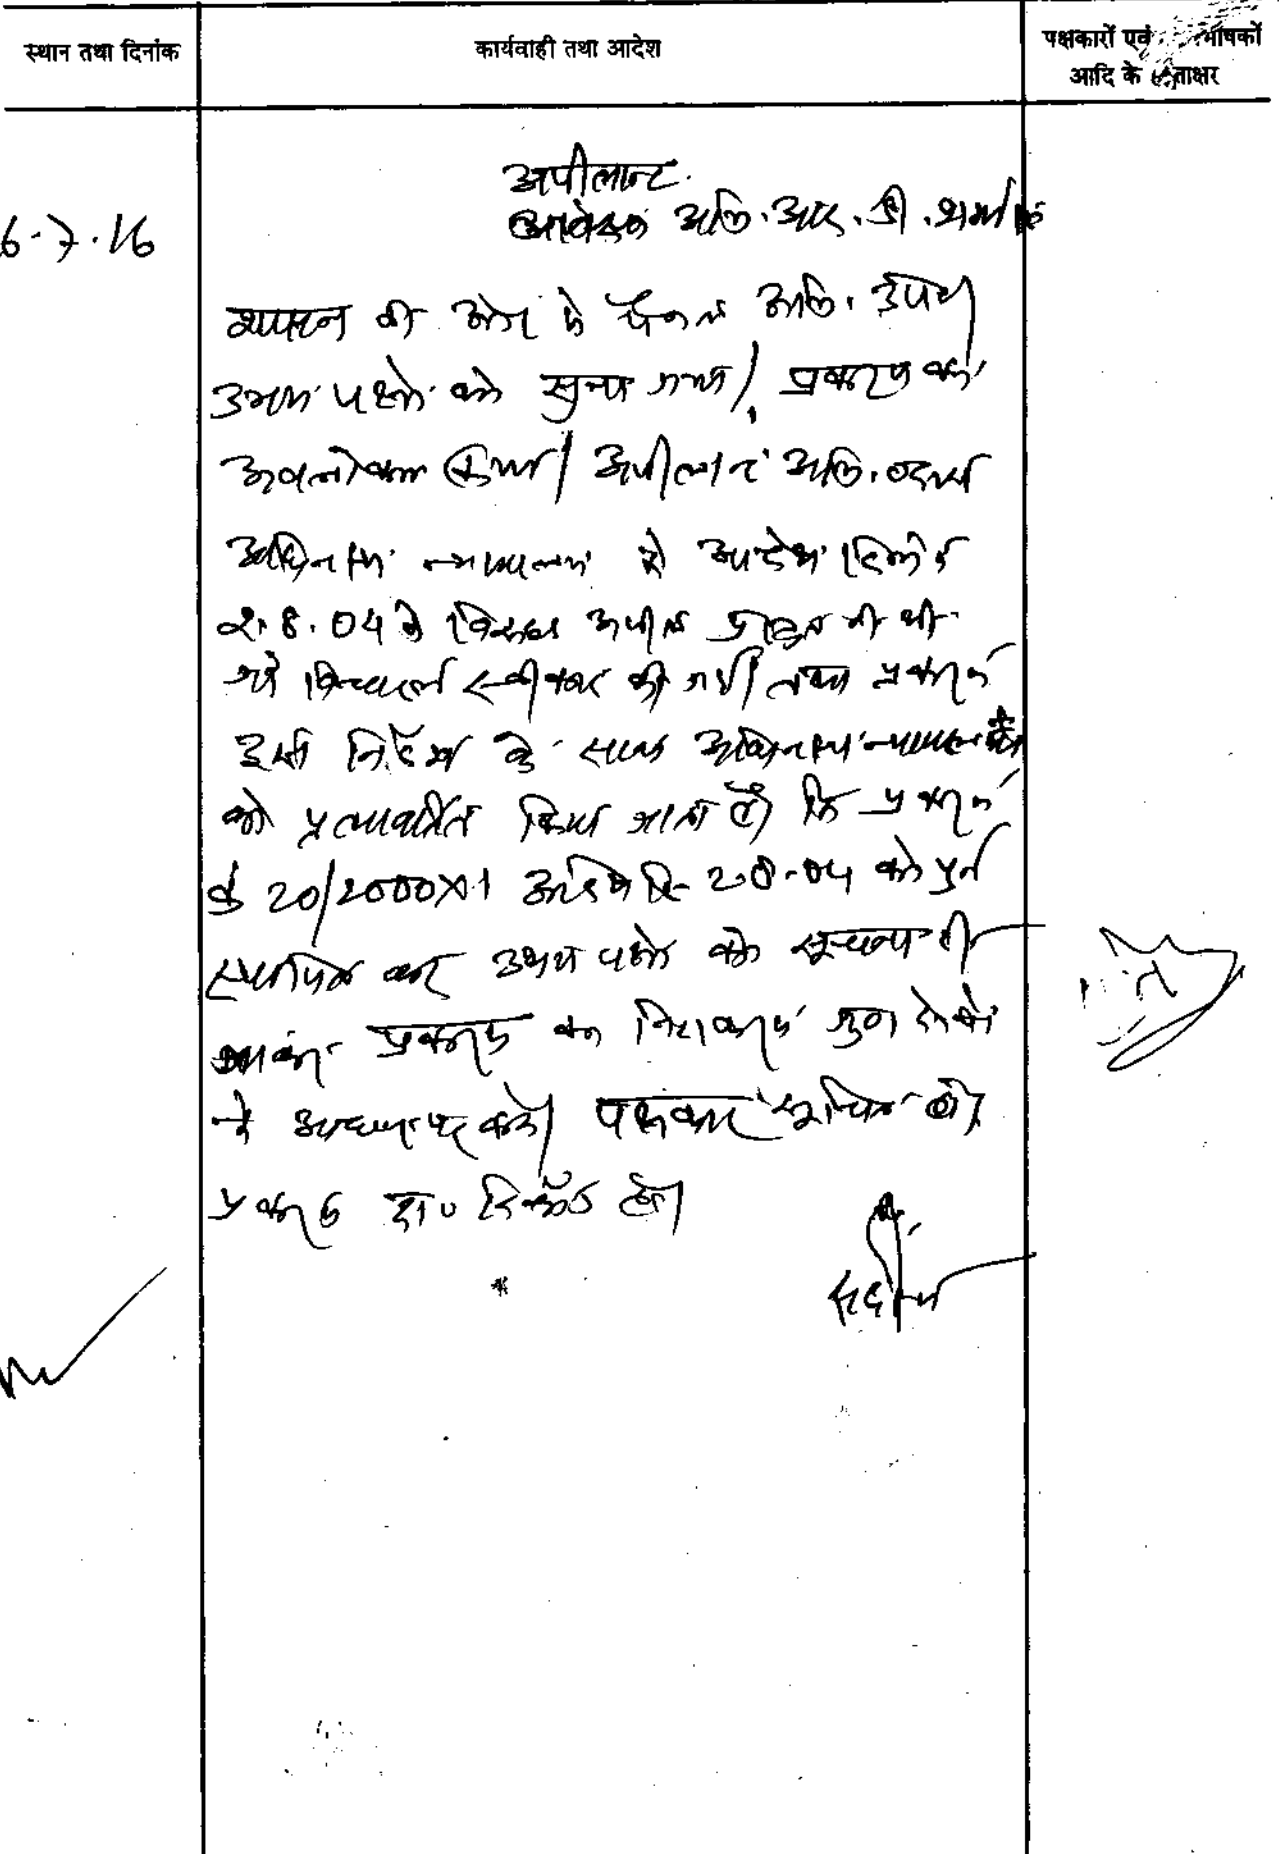 स्थान तथा दिनांक
कार्यवाही तथा आदेश
पक्षकारों एवं
आदि के
6.7.16
अपीलान्ट
आवेदक अभि. आर. डी. शर्मा
शासन की ओर से पैनल अभि. उपस्थित
उभय पक्षो को सुना गया। प्रकरण का
अवलोकन किया। अपीलान्ट अभि. द्वारा
अधिनस्थ न्यायालय के आदेश दिनांक
2.8.04 के विरूध्द अपील प्रस्तुत की थी
विचारार्थ स्वीकार की गयी तथा प्रकरण
इस निर्देश के साथ अधिनस्थ न्यायालय
को प्रत्यावर्तित किया जाता है कि प्रकरण
20/2000 आदेश दि 2.8.04 को पुर्न
स्थापित कर उभय पक्षो को सूचना दी
जाकर प्रकरण का निराकरण गुण दोषो
के आधार पर करे। पक्षकार सूचित हो।
प्रकरण दा0 रिकॉर्ड हो।
सदस्य